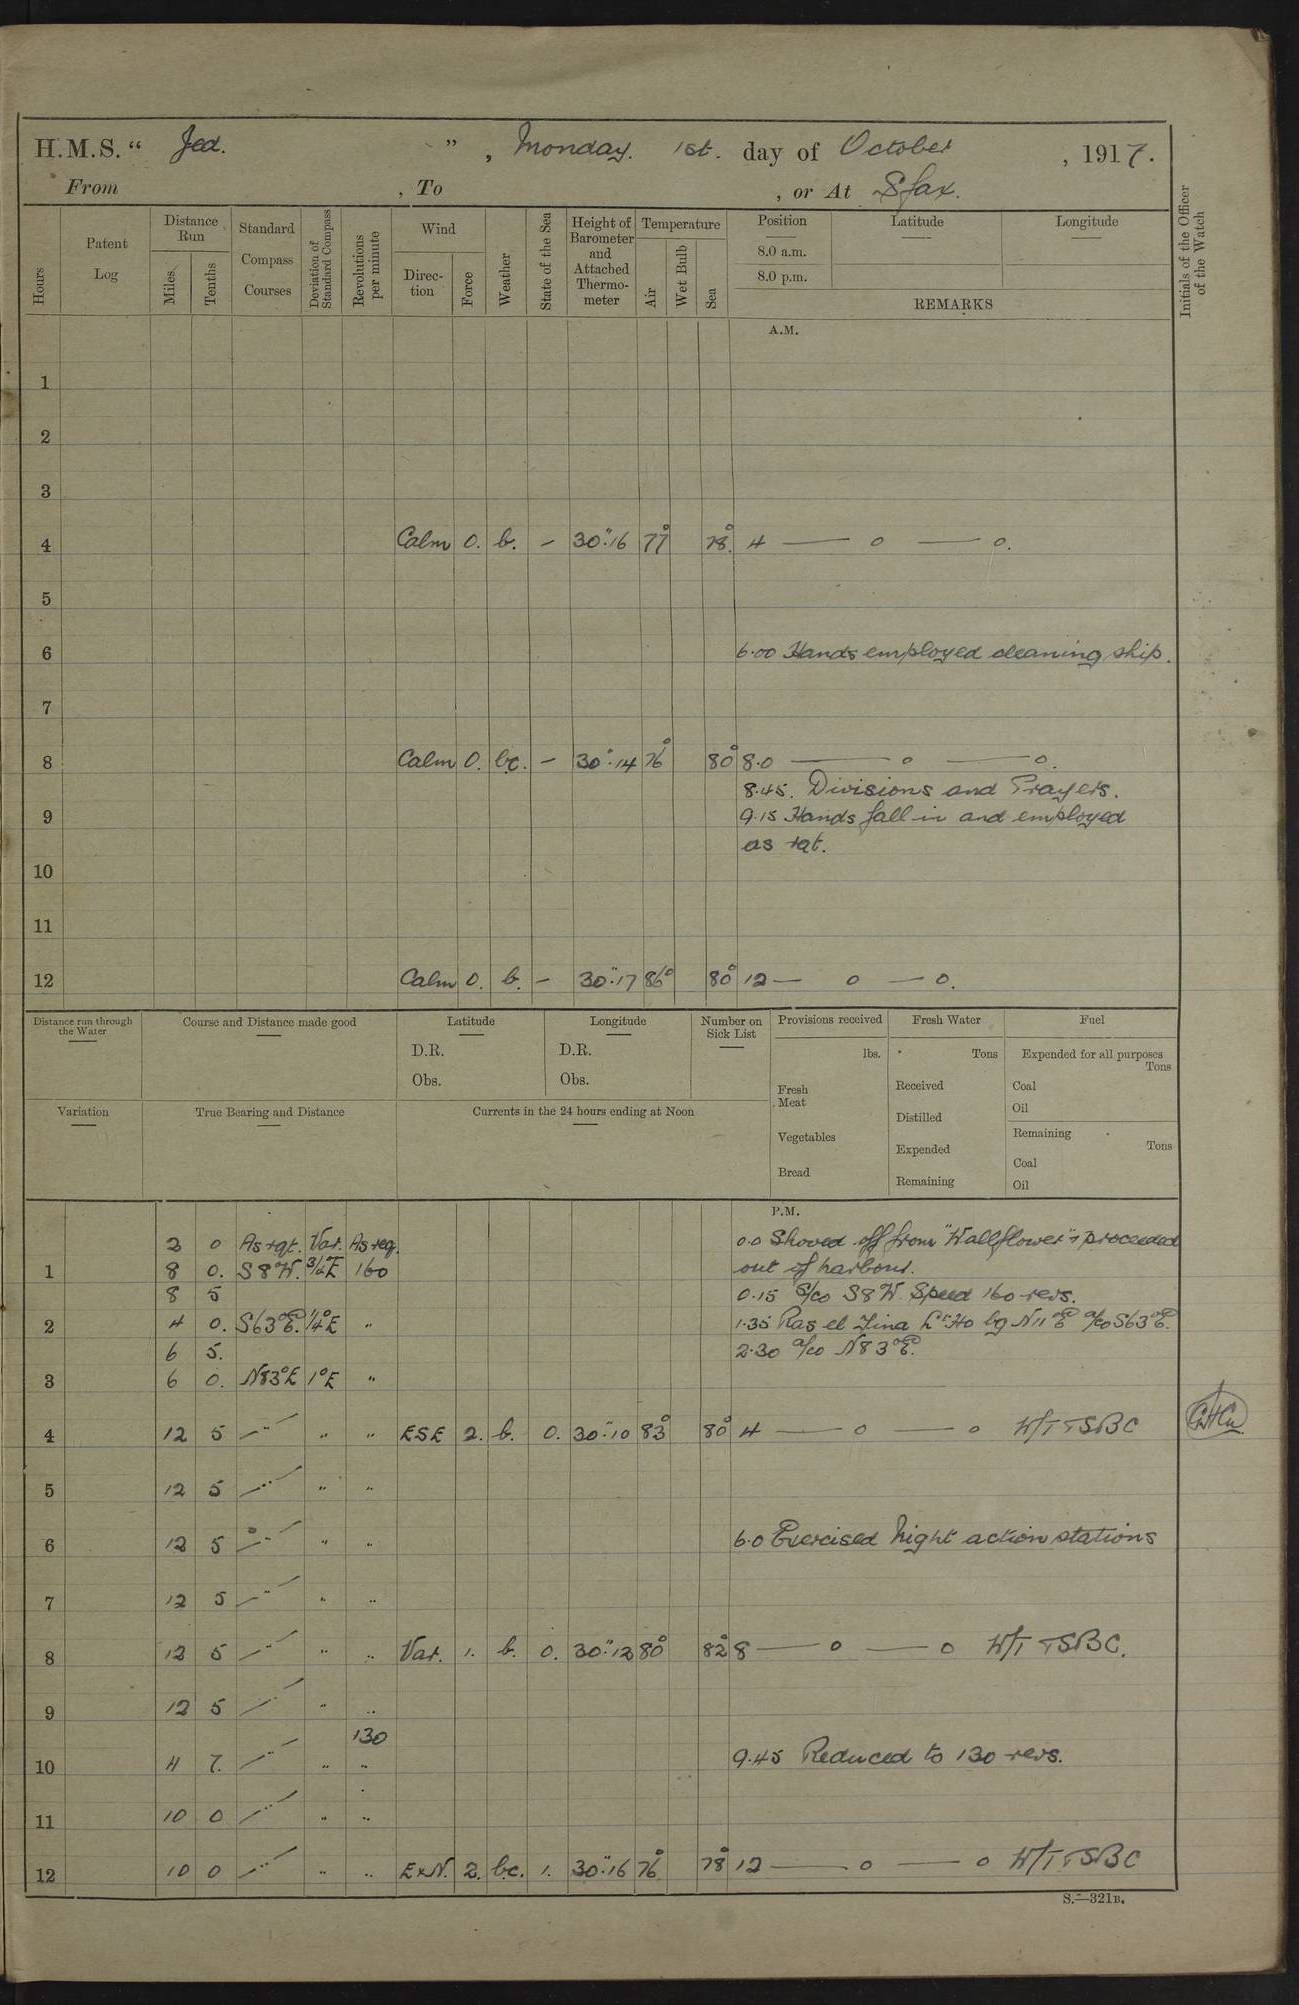 H.M.S. " Jed. " , Monday. 1st. day of October , 1917.
From , To , or At Sfax.
Hours
Patent Log
Distance Run
Miles
Tenths
Standard Compass Courses
Deviation of Standard Compass
Revolutions per minute
Wind
Direction
Force
Weather
State of the Sea
Height of Barometer and Attached Thermometer
Temperature
Air
Wet Bulb
Sea
Position
8.0 a.m.
8.0 p.m.
Latitude
Longitude
REMARKS
Initials of the Officer of the Watch
A.M.
1
2
3
4 Calm 0. b. – 30".16 77° 78° 4 — o — o.
5
6 6.00 Hands employed cleaning ship.
7
8 Calm 0. bc. – 30".14 76° 80° 8.0 — o — o.
8.45. Divisions and Prayers.
9 9.15 Hands fall in and employed
as rqt.
10
11
12 Calm 0. b. – 30".17 86° 80° 12 — o — o.
Distance run through the Water
Course and Distance made good
Latitude
D.R.
Obs.
Longitude
D.R.
Obs.
Number on Sick List
Provisions received
lbs.
Fresh Meat
Vegetables
Bread
Fresh Water
Tons
Received
Distilled
Expended
Remaining
Fuel
Expended for all purposes
Tons
Coal
Oil
Remaining
Tons
Coal
Oil
Variation
True Bearing and Distance
Currents in the 24 hours ending at Noon
P.M.
2 0 As rqt. Var. As req. 0.0 Shoved off from "Wallflower" & proceeded
1 8 0. S8°W. 3/4°E 160 out of harbour.
8 5 0.15 S/co S8°W Speed 160 revs.
2 4 0. S63°E. 1/4°E " 1.35 Ras el Tina Lt Ho bg N11°E a/co S63°E.
6 5. 2.30 a/co N83°E.
3 6 0. N83°E 1°E "
4 12 5 " " " ESE 2. b. 0. 30".10 83° 80° 4 — o — o W/T TSBC
5 12 5 " " "
6 12 5 " " " 6.0 Exercised Night action stations
7 12 5 " " "
8 12 5 " " " Var. 1. b. 0. 30".12 80° 82° 8 — o — o W/T TSBC.
9 12 5 " " "
130
10 4 7. " " " 9.45 Reduced to 130 revs.
11 10 0 " " "
12 10 0 " " " ExN. 2. bc. 1. 30".16 76° 78° 12 — o — o W/T TSBC
S.—321B.